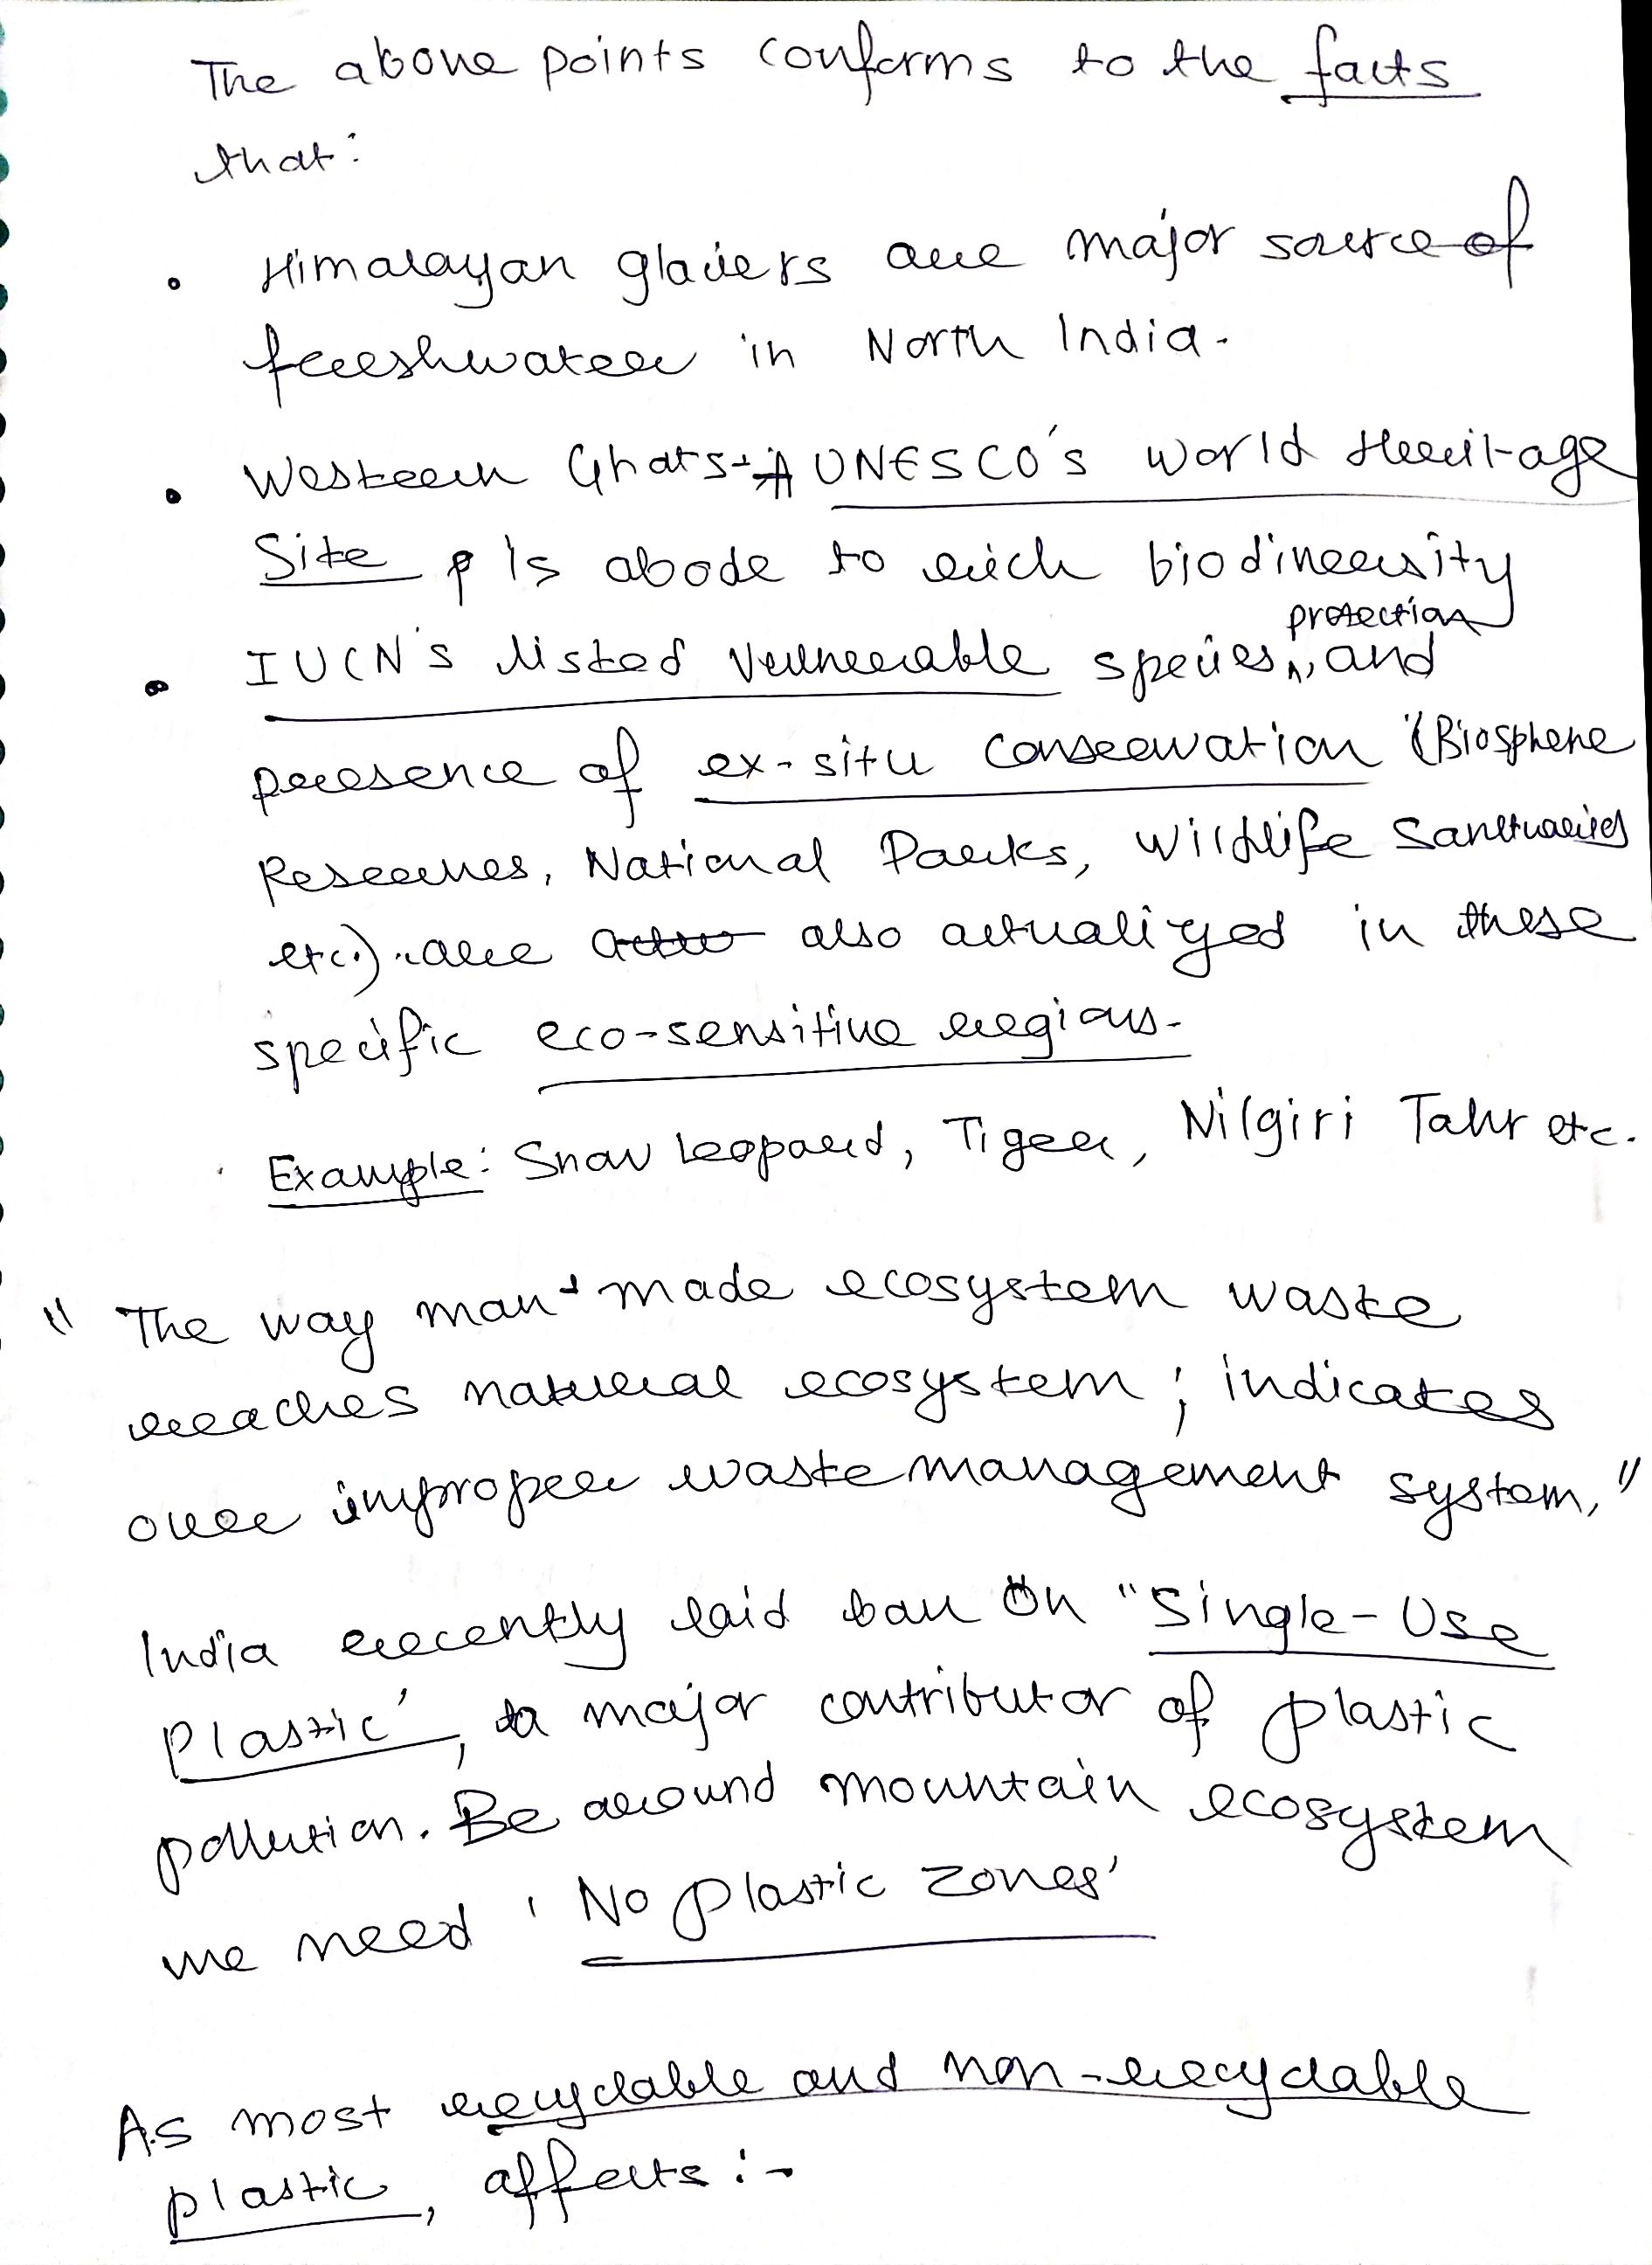 The above points conforms to the facts
that:
• Himalayan glaciers are major source of
freeshwater in North India.
• Western Ghats - A UNESCO's World Heritage
Site Is abode to rich biodiversity
protection
• IUCN's listed Vulnerable species, and
presence of ex-situ Conservation (Biosphere
Reserves, National Parks, Wildlife Sanctuaries
etc.) are also actualized in these
specific eco-sensitive regions.
Example: Snow Leopard, Tiger, Nilgiri Tahr etc.
" The way man-made ecosystem waste
reaches natural ecosystem ; indicates
over improper waste management system."
India recently laid ban on "Single-Use
Plastic', a major contributor of plastic
pollution. Be around mountain ecosystem
we need 'No plastic zones'
As most recyclable and non-recyclable
plastic, affects :-